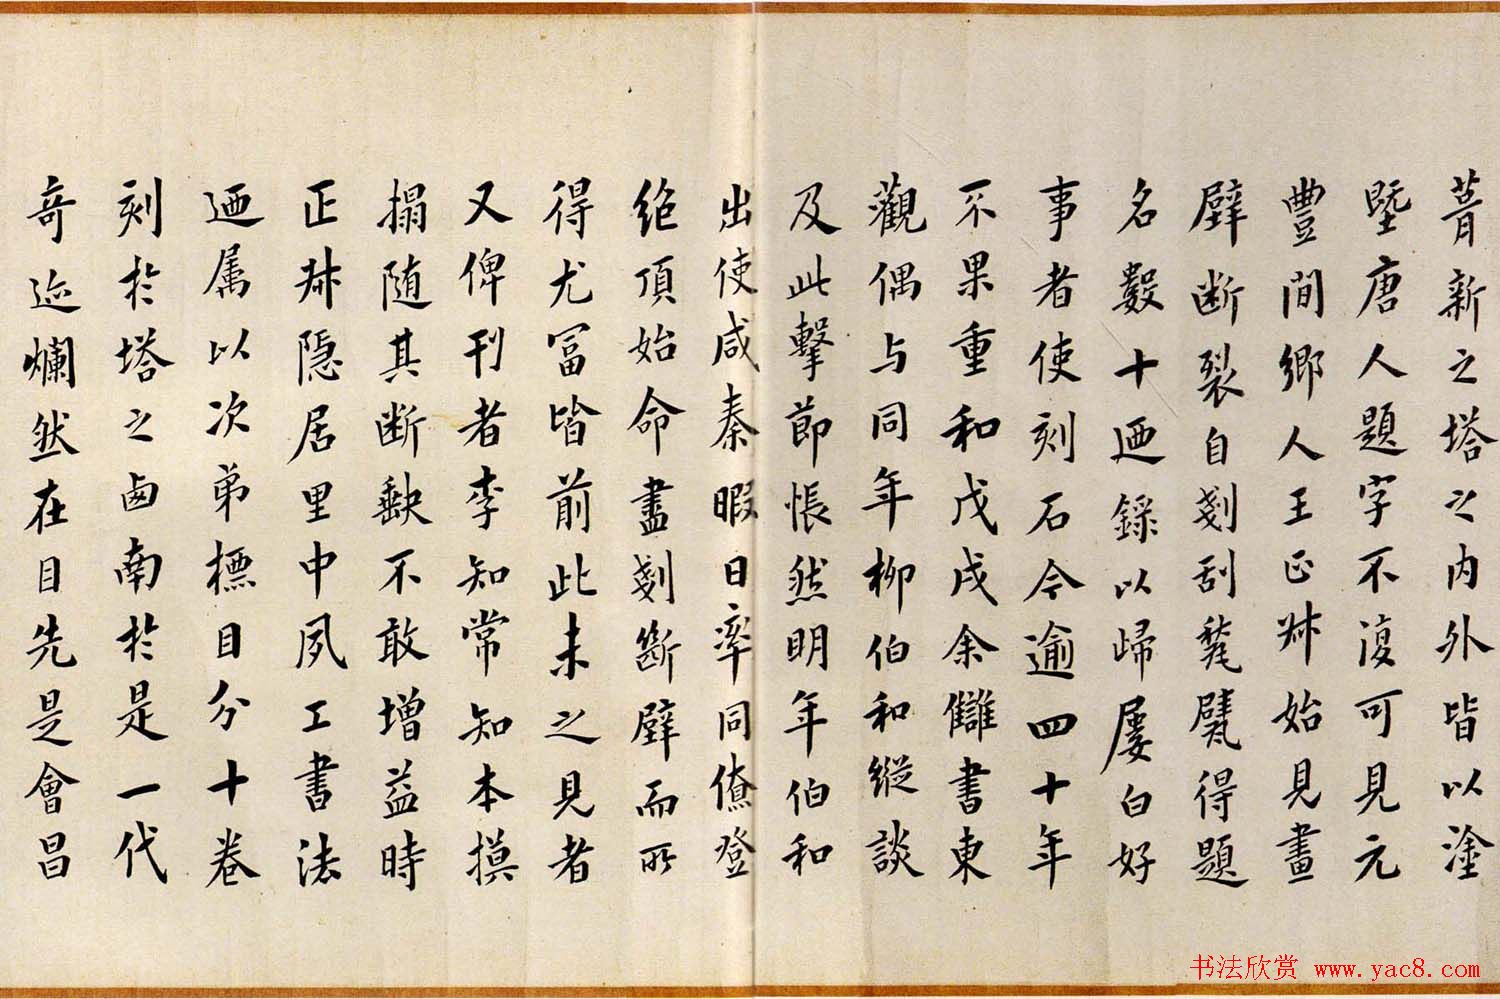 葺新之塔之内外皆以塗
塈唐人題字不復可見元
豐間鄉人王正叔始見畫
壁断裂自剗刮甃甓得題
名數十迺錄以歸屢白好
事者使刻石今逾四十年
不果重和戊戌余讎書東
觀偶与同年柳伯和縱談
及此擊節悵然明年伯和
出使咸秦暇日率同僚登
絶頂始命盡剗斷壁而所
得尤冨皆前此未之見者
又俾刊者李知常知本摸
搨随其断缺不敢增益時
正叔隐居里中夙工書法
迺属以次弟標目分十卷
刻於塔之卥南於是一代
奇迹爛然在目先是會昌
书法欣赏 www.yac8.com